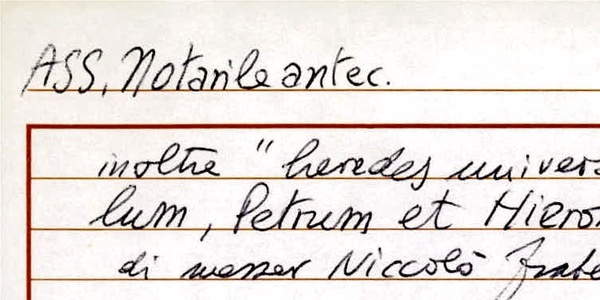 ASS, Notarile antec.
inoltre " heredes univers
lum, Petrum et Hieron
di messer Niccolò frate